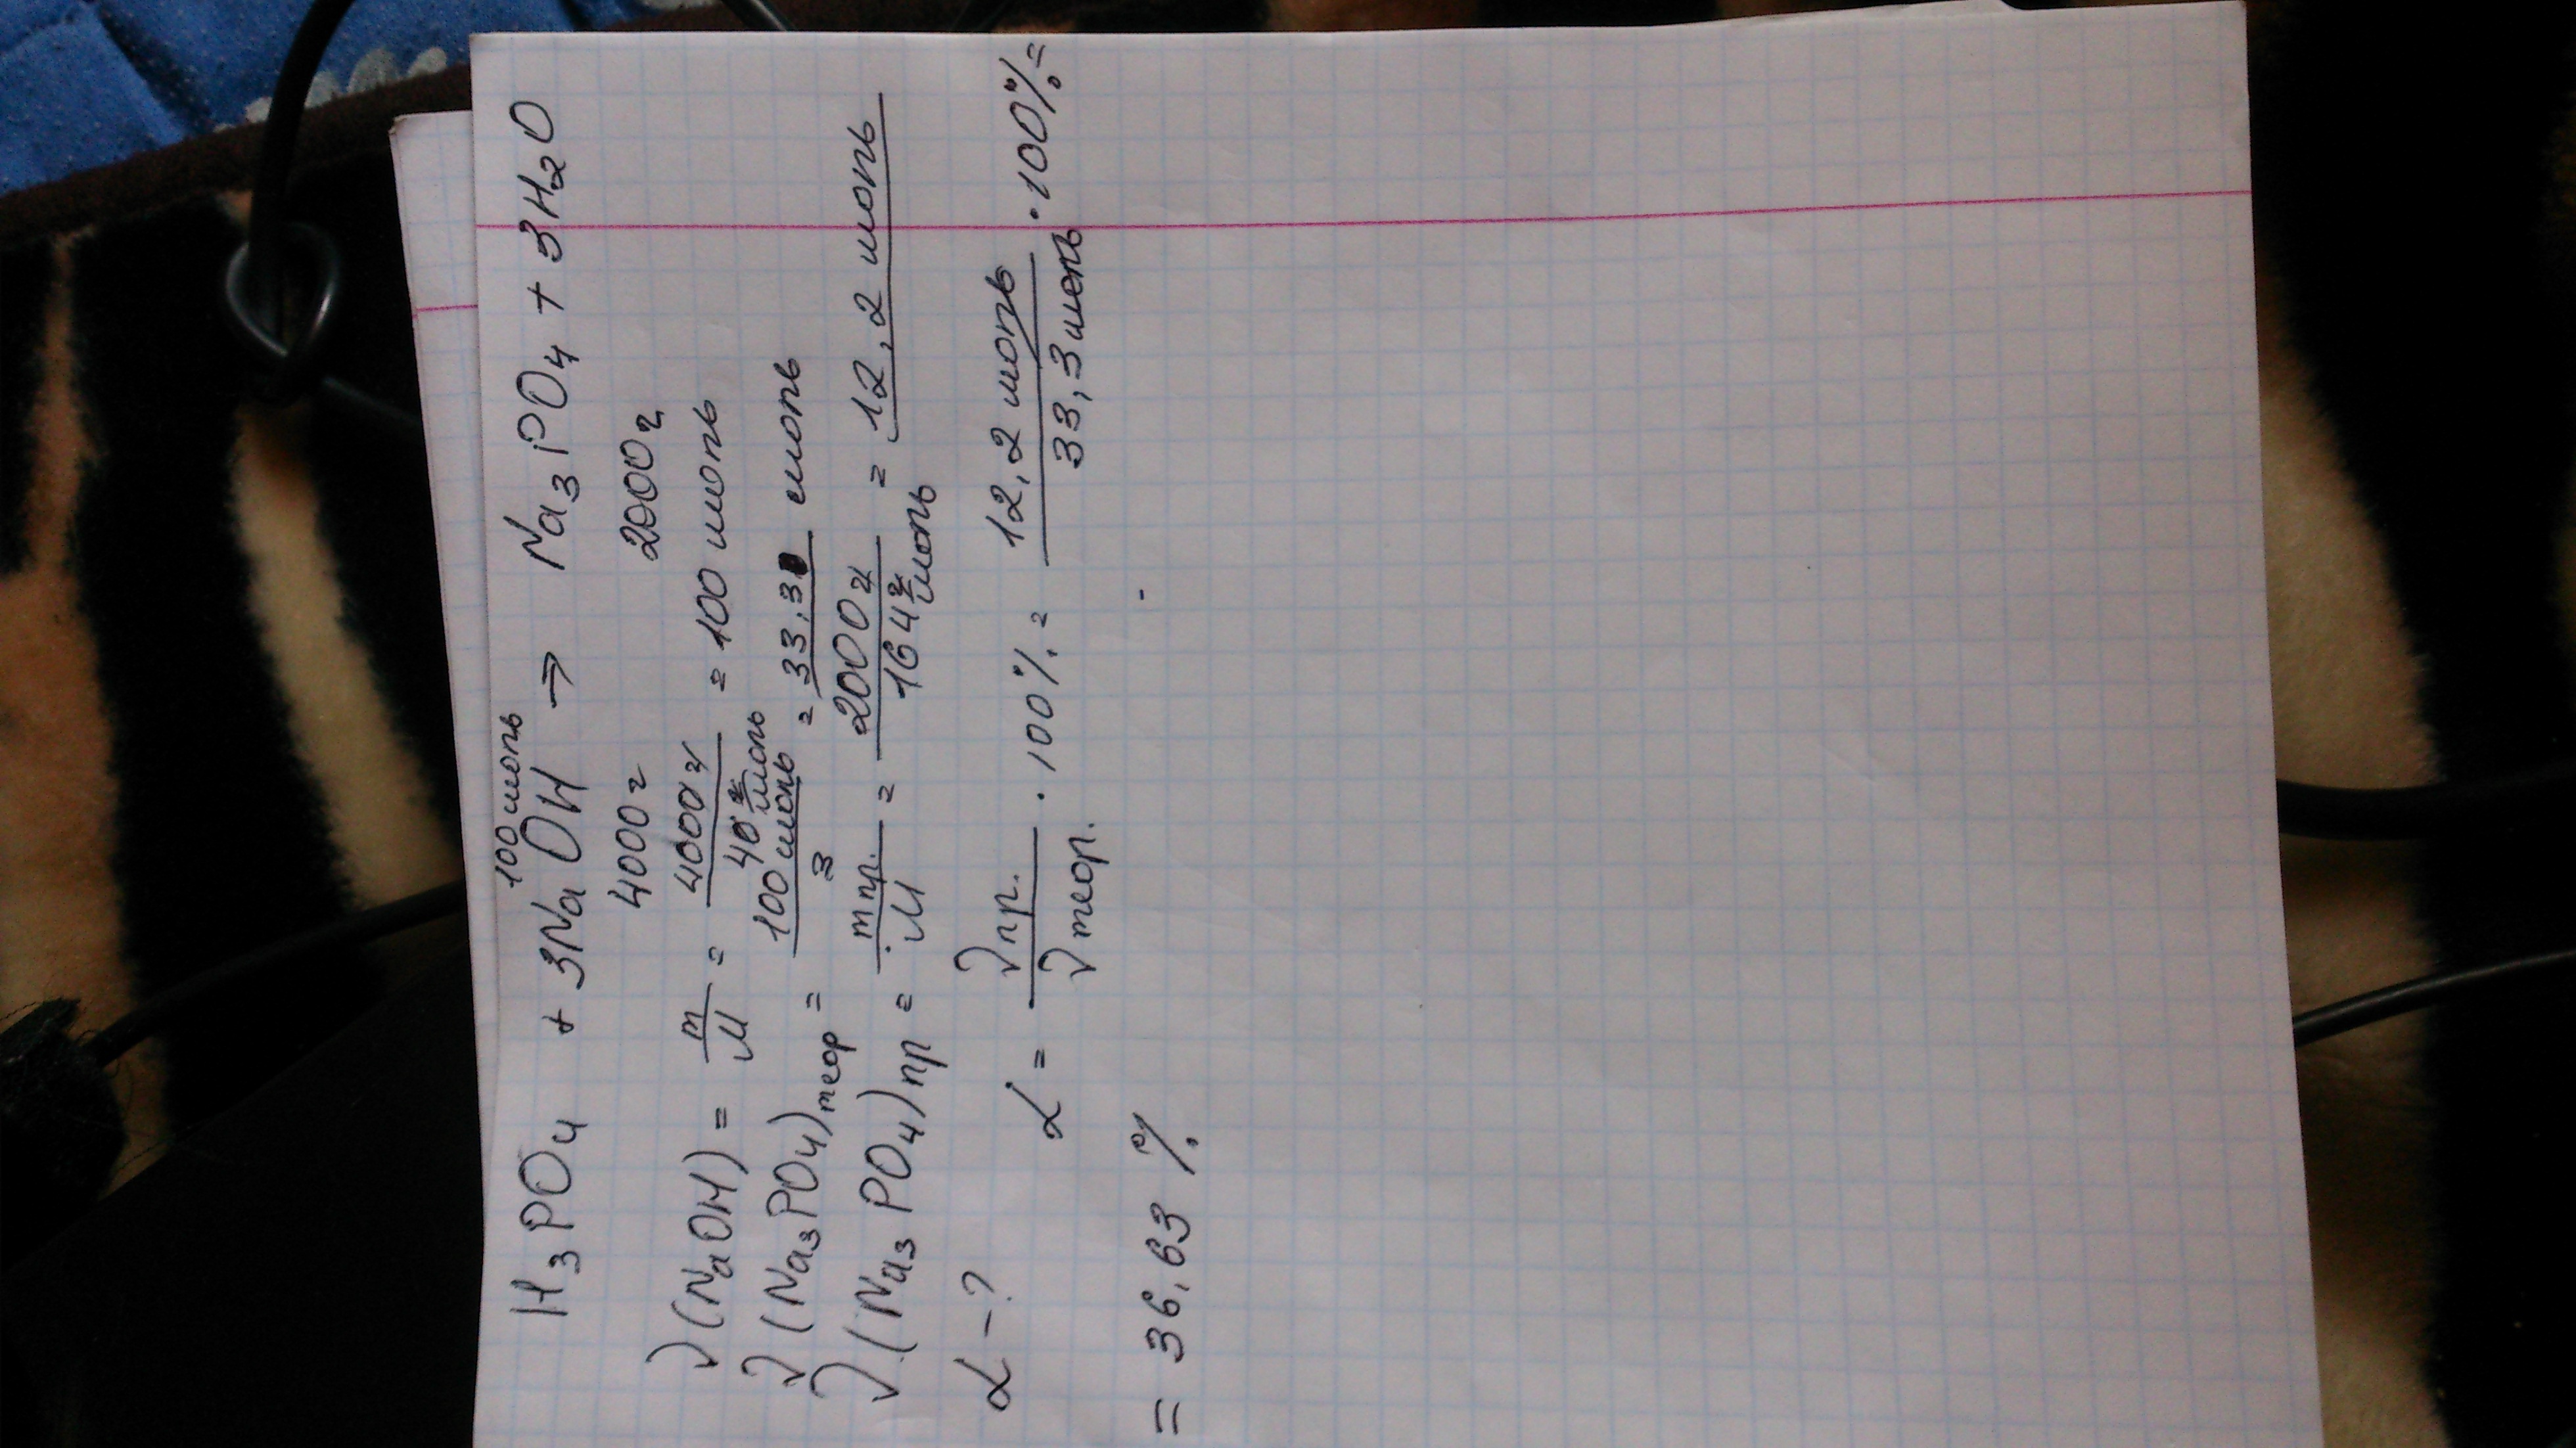 100 моль
H₃PO₄ + 3NaOH → Na₃PO₄ + 3H₂O
4000 г 2000 г
ν(NaOH) = m/M = 4000 г / 40 г/моль = 100 моль
ν(Na₃PO₄)теор = 100 моль / 3 = 33,3 моль
ν(Na₃PO₄)пр = m пр. / M = 2000 г / 164 г/моль = 12,2 моль
α - ? α = ν пр. / ν теор. · 100% = 12,2 моль / 33,3 моль · 100% =
= 36,63 %